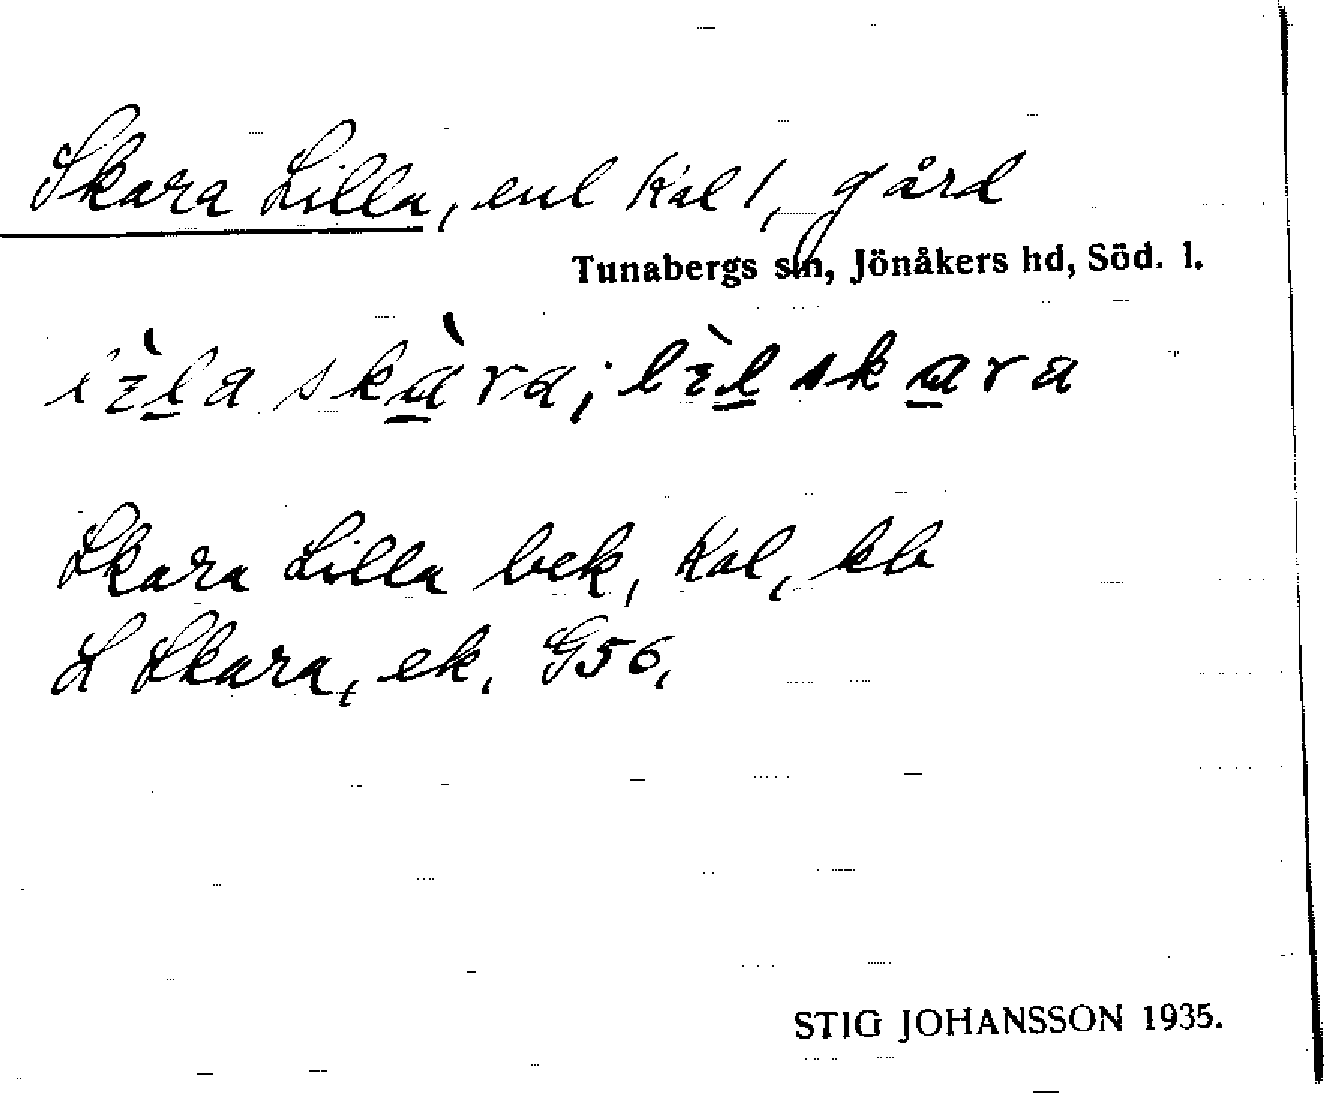 Skara Lilla, enl Kal 1, gård
Tunabergs sn, Jönåkers hd, Söd. l.
lìla skàra; lìlskara
Skara Lilla bek, Kal, kb
L Skara, ek, G56,
STIG JOHANSSON 1935.